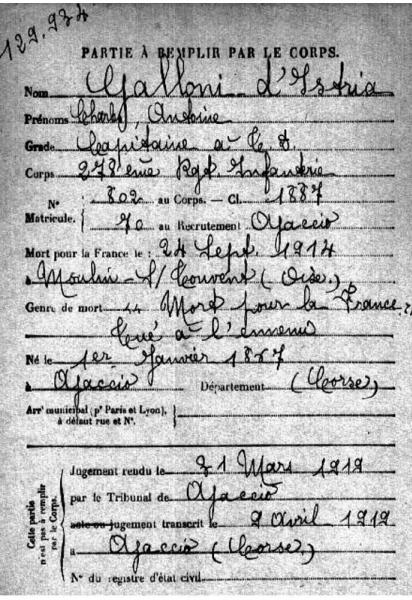 129.934
PARTIE À REMPLIR PAR LE CORPS.
Nom Galloni d'Istria
Prénoms Charles, Antoine
Grade Capitaine à T. D.
Corps 273ème Rgt. Infanterie
N° 802 au Corps. — Cl. 1887
Matricule. 70 au Recrutement Ajaccio
Mort pour la France le : 24 Sept. 1914
à Moulin - S/ Touvent (Oise.)
Genre de mort Mort pour la France,
Tué à l'ennemi
Né le 1er Janvier 1867
à Ajaccio Département (Corse)
Arr¹ municipal (p' Paris et Lyon),
à défaut rue et N°.
Cette partie n'est pas à remplir par le Corps.
Jugement rendu le 31 Mars 1919
par le Tribunal de Ajaccio
acte ou jugement transcrit le 9 Avril 1919
à Ajaccio (Corse.)
N° du registre d'état civil